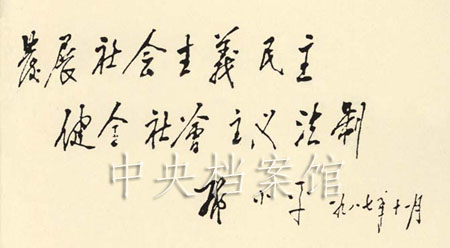 發展社会主義民主
健全社會主义法制
中央档案馆
邓小平 一九八七年十一月